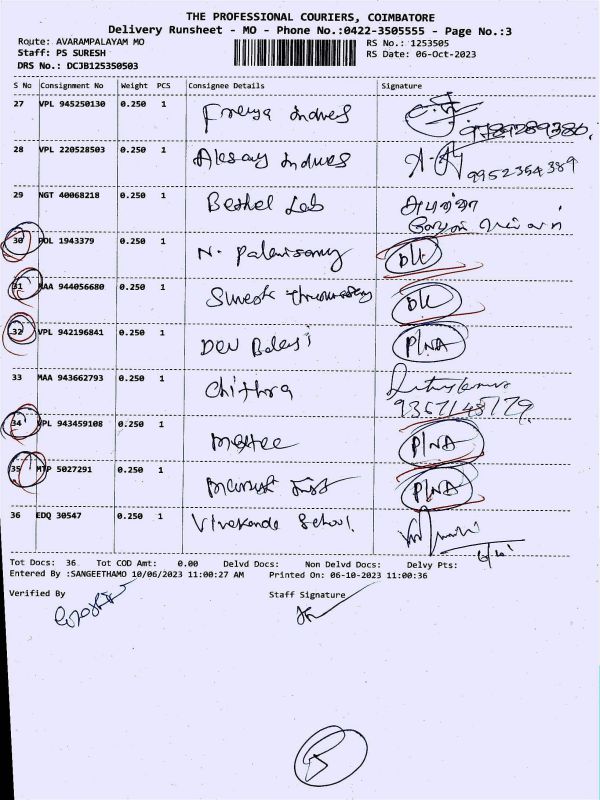 THE PROFESSIONAL COURIERS, COIMBATORE
Delivery Runsheet - MO - Phone No.:0422-3505555 - Page No.:3
Route: AVARAMPALAYAM MO RS No.: 1253505
Staff: PS SURESH RS Date: 06-Oct-2023
DRS No.: DCJB125350503
S No Consignment No Weight PCS Consignee Details Signature
27 VPL 945250130 0.250 1 9789289380.
28 VPL 220528503 0.250 1 9952354389
29 NGT 40068218 0.250 1 Bethel Lab
30 POL 1943379 0.250 1 N. Palanisamy D/L
31 MAA 944056680 0.250 1 Suresh D/L
32 VPL 942196841 0.250 1 Dev Balaji P/NA
33 MAA 943662793 0.250 1 Chithra
9367148779.
34 VPL 943459108 0.250 1 P/NA
35 MTP 5027291 0.250 1 P/NA
36 EDQ 30547 0.250 1 School.
Tot Docs: 36 Tot COD Amt: 0.00 Delvd Docs: Non Delvd Docs: Delvy Pts:
Entered By :SANGEETHAMO 10/06/2023 11:00:27 AM Printed On: 06-10-2023 11:00:36
Verified By Staff Signature